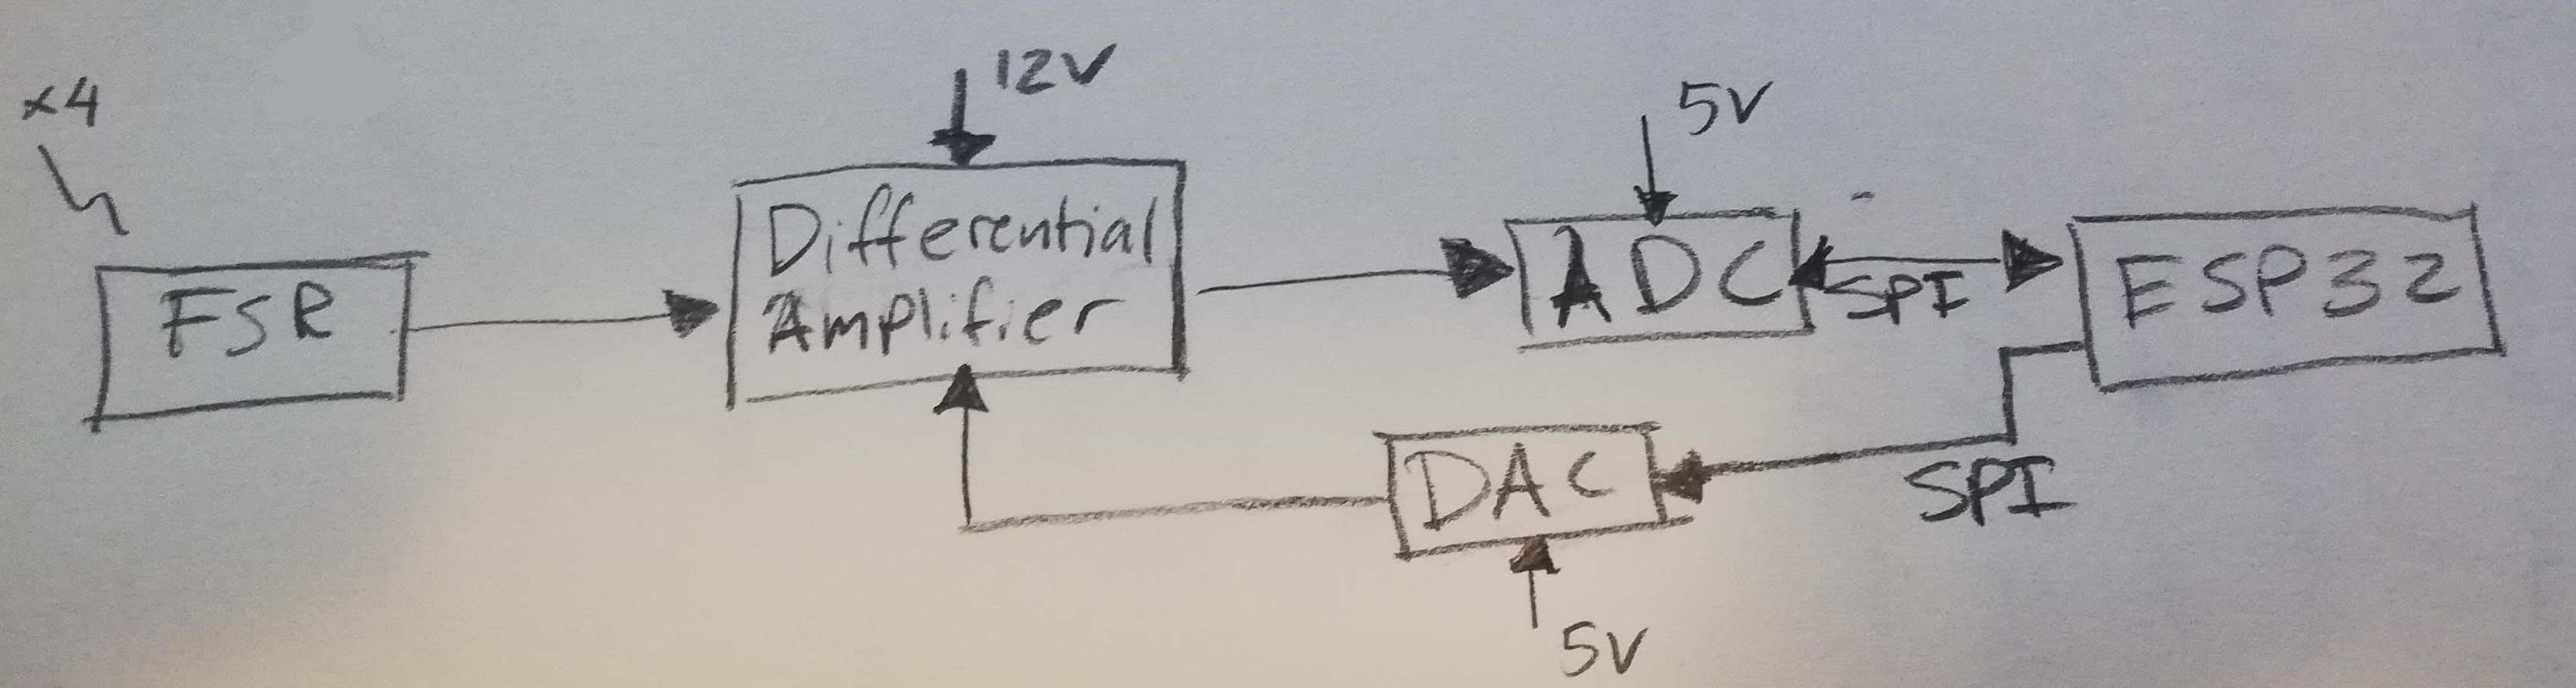 x4
12V
5V
FSR
Differential
Amplifier
ADC
SPI
ESP32
DAC
SPI
5V